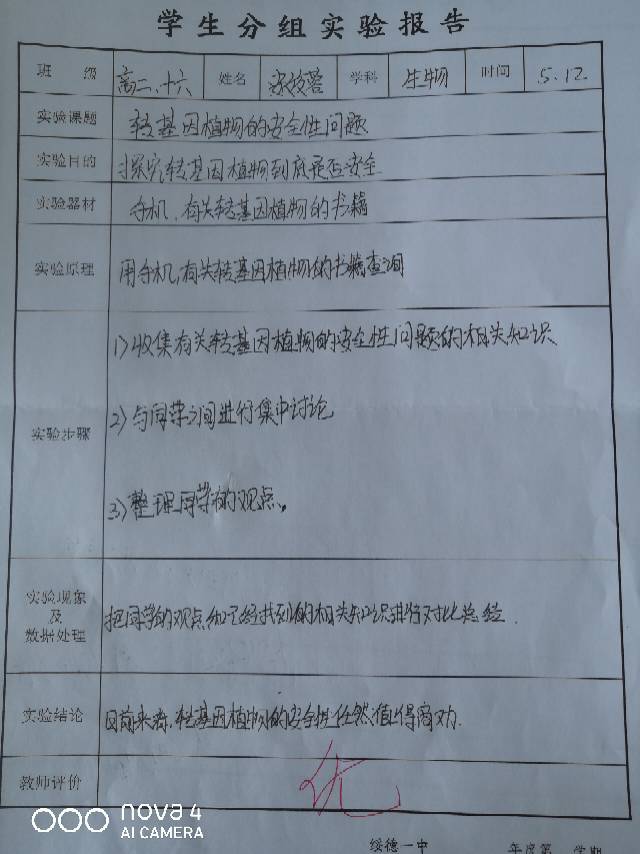 学生分组实验报告
班级 高二、十六 姓名 学科 生物 时间 5.12.
实验课题 转基因植物的安全性问题
实验目的 探究转基因植物到底是否安全
实验器材 手机、有关转基因植物的书籍
实验原理 用手机,有关转基因植物的书籍查询
1)收集有关转基因植物的安全性问题的相关知识
实验步骤
2)与同学之间进行集中讨论
3)整理同学的观点。
实验现象及数据处理
把同学的观点和已经找到的相关知识进行对比总经.
实验结论 目前来看,转基因植物的安全性任然值得商
教师评价 优
nova 4
AI CAMERA
绥德一中 年度第 学期